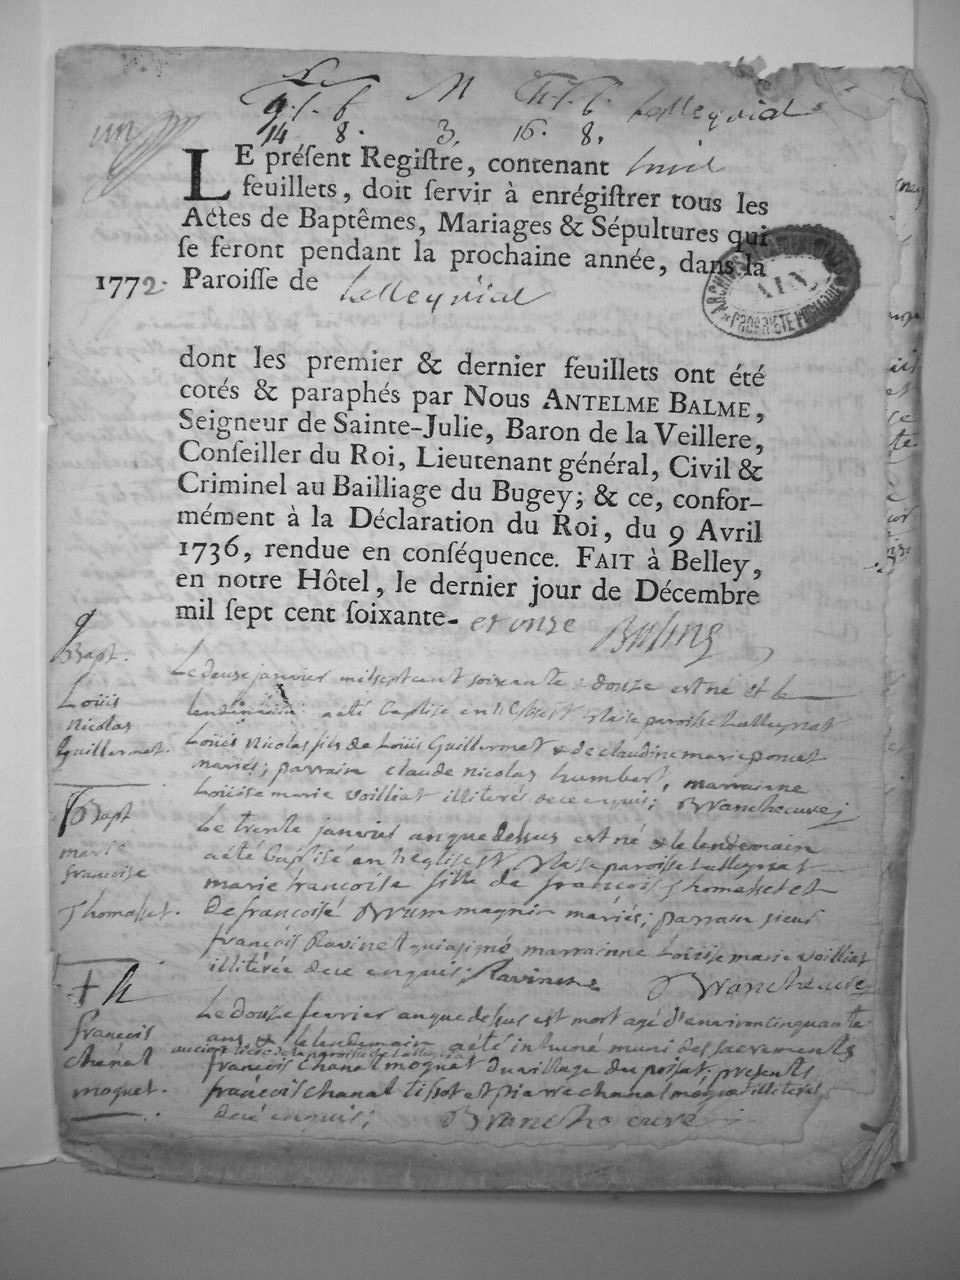 M
14 8. 3. 16. 8.
LE préſent Regiſtre, contenant huit
feuillets, doit ſervir à enrégiſtrer tous les
Actes de Baptêmes, Mariages & Sépultures qui
ſe feront pendant la prochaine année, dans la
1772. Paroiſſe de Lalleyriat
dont les premier & dernier feuillets ont été
cotés & paraphés par Nous ANTELME BALME,
Seigneur de Sainte-Julie, Baron de la Veillere,
Conſeiller du Roi, Lieutenant général, Civil &
Criminel au Bailliage du Bugey; & ce, confor-
mément à la Déclaration du Roi, du 9 Avril
1736, rendue en conſéquence. FAIT à Belley,
en notre Hôtel, le dernier jour de Décembre
mil ſept cent ſoixante- et onze
Bapt.
Loüis
Nicolas
Guillermet.
Le douse janvier mil sept cent soixante douze est né et le
lendemain a été baptisé en l'eglise paroisse Lalleyriat
Loüis Nicolas fils de Loüis Guillermet & de claudine marie poncet
mariés; parrain claude nicolas humbert, marrainne
Loüise marie Voilliat illiterés de ce enquis; Branchecure
Bapt
marie
françoise
Thomasset.
Le trente janvier an que dessus est né & le lendemain
a été baptisé en l'eglise paroisse Lalleyriat
marie francoise fille de françois Thomasset et
de françoise Brun magnin mariés; parrain sieur
françois Ravinet qui a signé marrainne Loüise marie Voilliat
illitérée de ce enquis; Ravinet Branche cure
+ h
françois
chanal
moquet.
Le douze fevrier an que dessus est mort agé d'environ cinquante
ans & le lendemain a été inhumé muni des sacrements
françois chanal moquet du village du poisat. présents
françois chanal tissot et pierre chanal moquet illiterés
de ce enquis; Branche curé